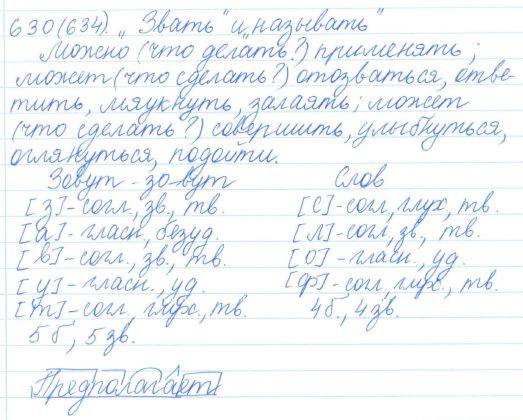 630 (634). „Звать" и „называть"
Можно (что делать?) применять;
может (что сделать?) отозваться, отве-
тить, мяукнуть, залаять; может
(что сделать?) совершить, улыбнуться,
оглянуться, подойти.
Зовут - зо-вут Слов
[з]-согл., зв., тв. [с]-согл., глух., тв.
[а]-гласн., безуд. [л]-согл., зв., тв.
[в]-согл., зв., тв. [о]-гласн., уд.
[у]-гласн., уд. [ф]-согл., глух., тв.
[т]-согл., глух., тв. 4б., 4зв.
5б, 5зв.
Предполагает